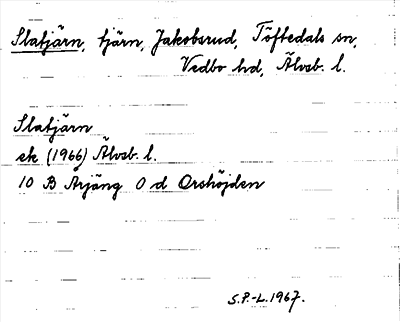 Slatjärn, tjärn, Jakobsrud, Töftedals sn,
Vedbo hd, Älvsb. l.
Slatjärn
ek (1966) Älvsb. l.
10 B Årjäng 0 d Orshöjden
S.P.-L. 1967.